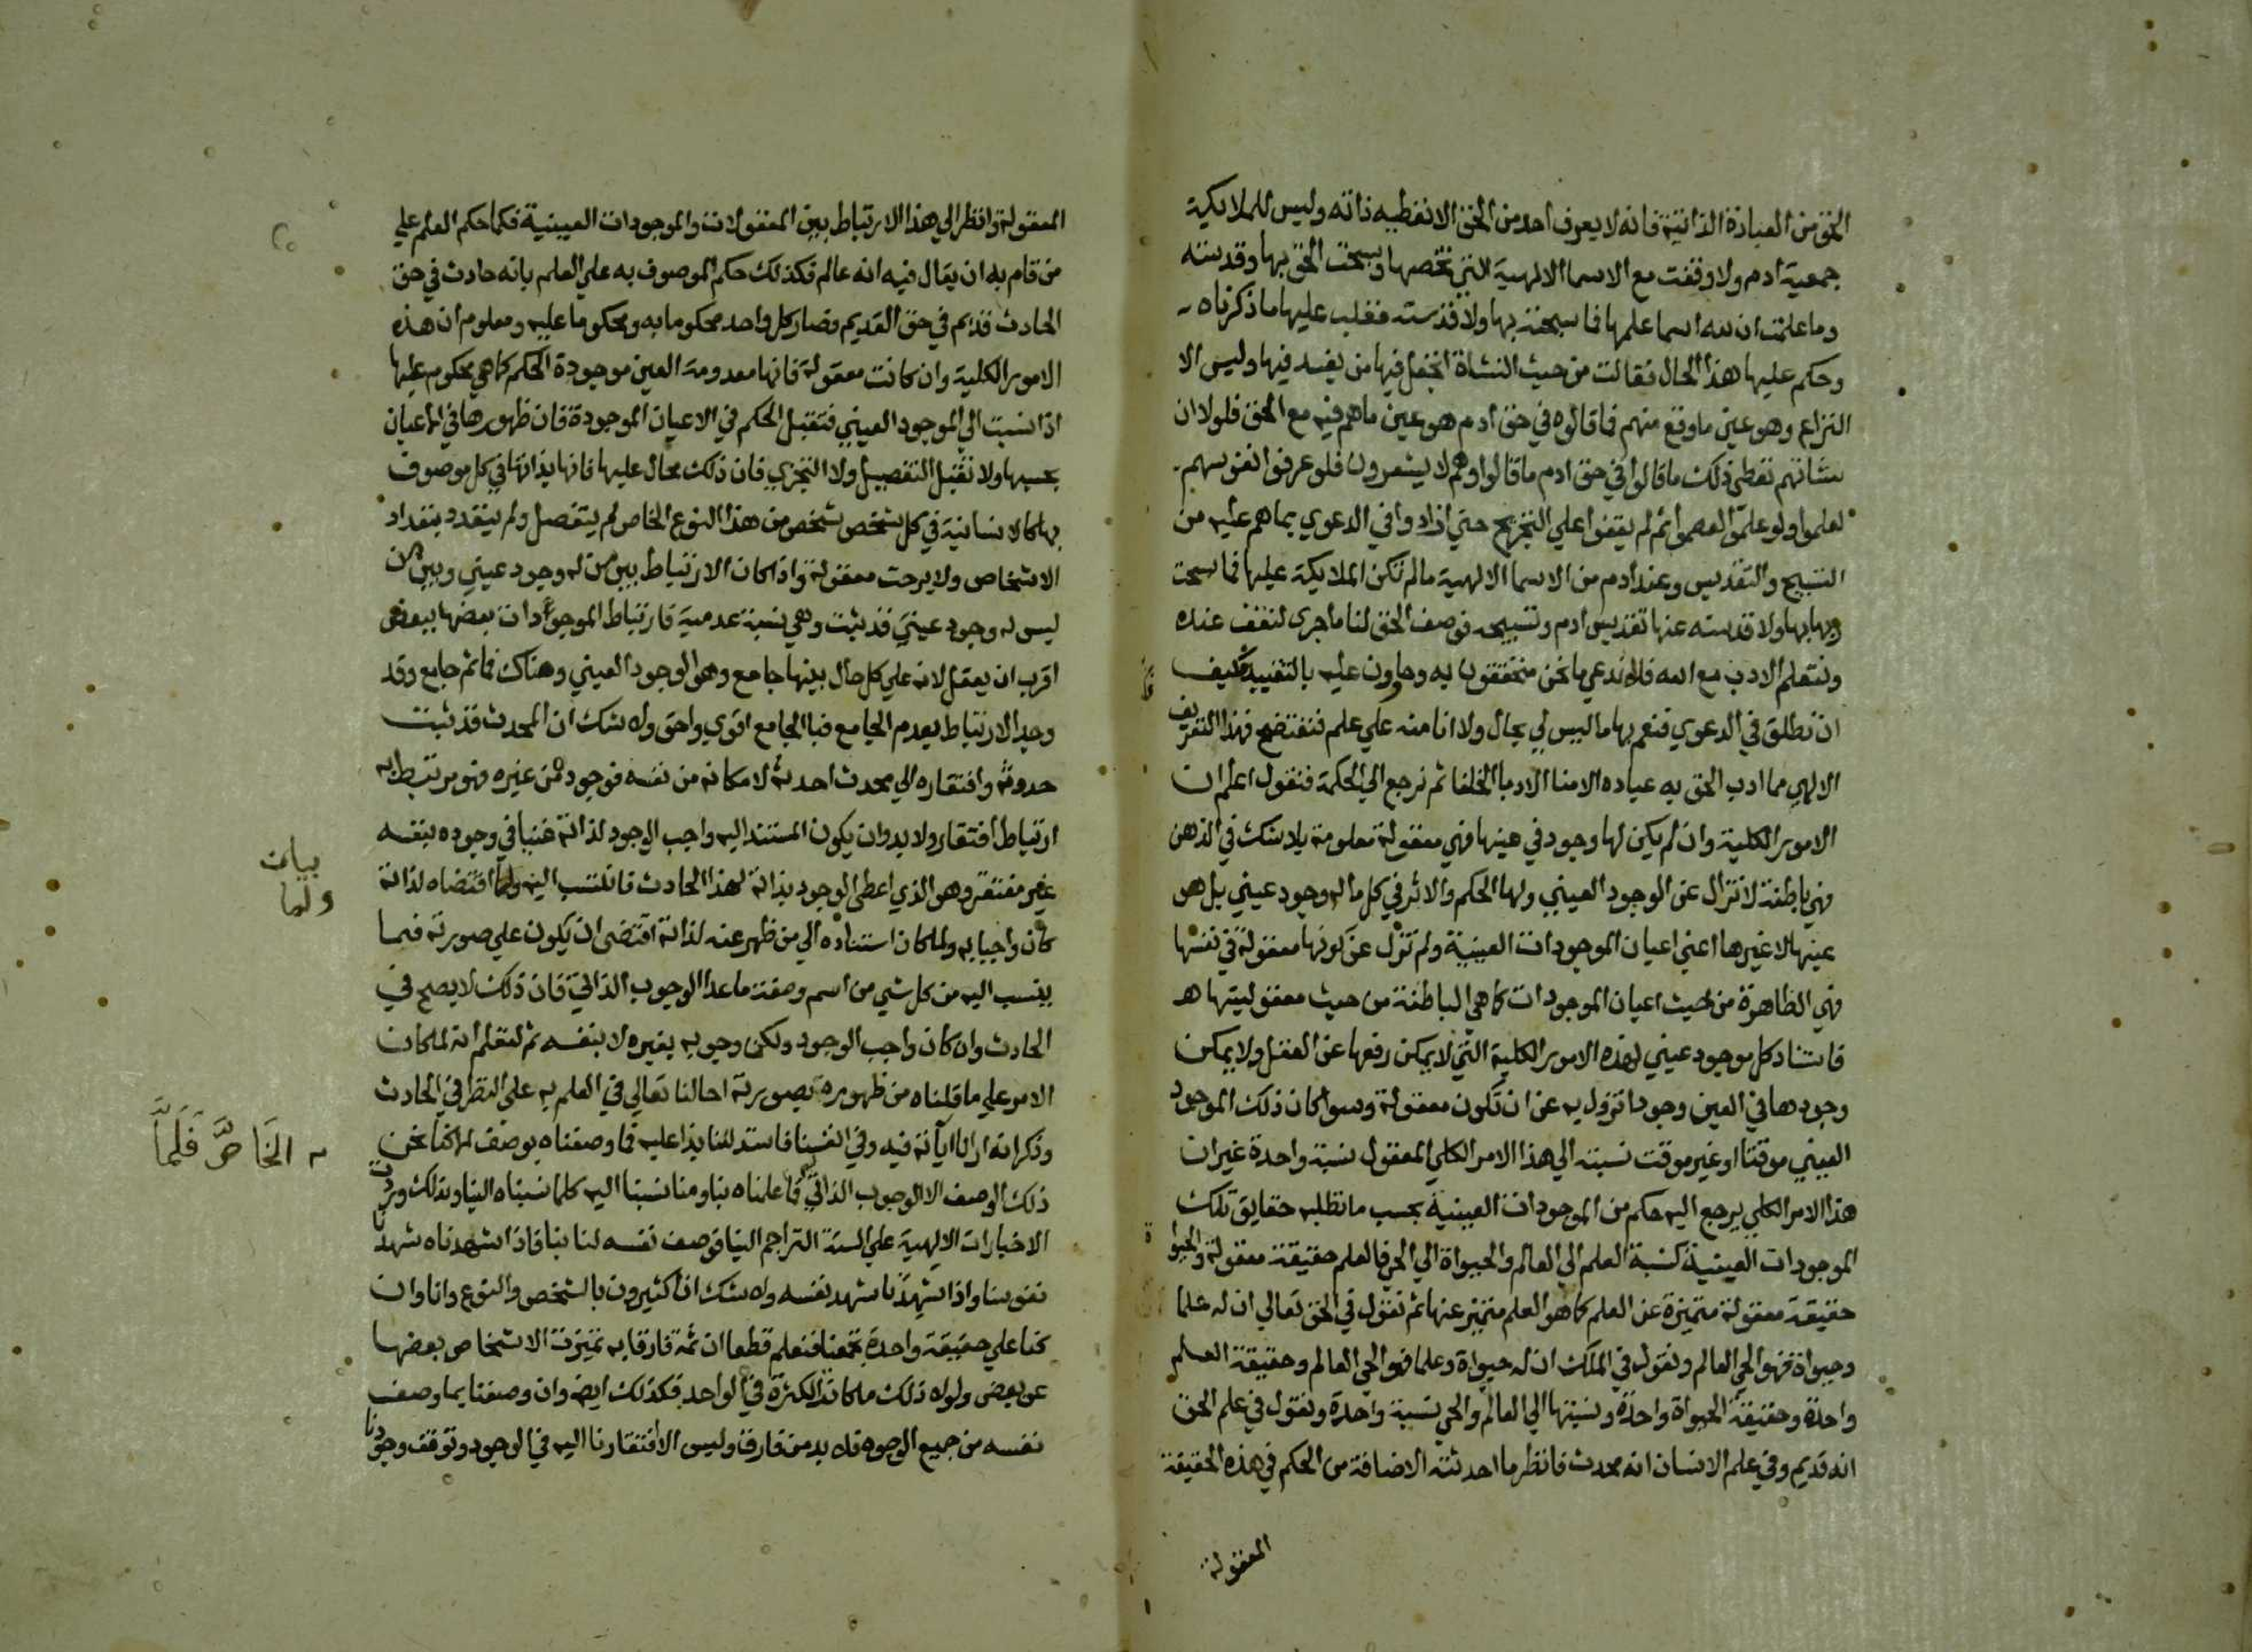 الحق من العبادة الذاتية فانه لا يعرف احد من الحق الا ما تعطيه ذاته وليس للملايكة
جمعية ادم ولا وقفت مع الاسما الالهية التي تخصها وسبحت الحق بها وقدسته
وما علمت ان لله اسما علمها فما سبحته بها ولا قدسته فغلب عليها ما ذكرناه
وحكم عليها هذا الحال فقالت من حيث النشاة اتجعل فيها من يفسد فيها وليس الا
النزاع وهو عين ما وقع منهم فما قالوه في حق ادم هو عين ما هم فيه مع الحق فلولا ان
نشاتهم تعطي ذلك ما قالوا في حق ادم ما قالوا وهم لا يشعرون فلو عرفوا نفوسهم
لعلموا ولو علموا لعصموا ثم لم يقفوا علي التجريح حتي ازادوا في الدعوي بما هم عليه من
التسبيح والتقديس وعند ادم من الاسما الالهية ما لم تكن الملايكة عليها فما سبحت
ربها بها ولا قدسته عنها تقديس ادم وتسبيحه فوصف الحق لنا ما جري لنقف عنده
ونتعلم الادب مع الله فلا ندعي ما نحن متحققون به وحاوون عليه بالتقييد فكيف
ان نطلق في الدعوي فنعم بها ما ليس لي بحال ولا انا منه علي علم فنفتضح فهذا التعريف
الالهي مما ادب الحق به عباده الامنا الادبا الخلفا ثم نرجع الي الحكمة فنقول اعلم ان
الامور الكلية وان لم يكن لها وجود في عينها فهي معقولة معلومة بلا شك في الذهن
فهي باطنة لا تزال عن الوجود العيني ولها الحكم والاثر في كل ما له وجود عيني بل هو
عينها لا غيرها اعني اعيان الموجودات العينية ولم تزل عن كونها معقولة في نفسها
فهي الظاهرة من حيث اعيان الموجودات كما هي الباطنة من حيث معقوليتها
فاستناد كل موجود عيني لهذه الامور الكلية التي لا يمكن رفعها عن العقل ولا يمكن
وجودها في العين وجودا تزول به عن ان تكون معقولة وسوا كان ذلك الموجود
العيني موقتا او غير موقت نسبته الي هذا الامر الكلي المعقول نسبة واحدة غير ان
هذا الامر الكلي يرجع اليه حكم من الموجودات العينية بحسب ما تطلبه حقايق تلك
الموجودات العينية كنسبة العلم الي العالم والحيواة الي الحي فالعلم حقيقة معقولة والحيواة
حقيقة معقولة متميزة عن العلم كما هو العلم متميز عنها ثم نقول في الحق تعالي ان له علما
وحيواة فهو الحي العالم ونقول في الملك ان له حيواة وعلما فهو الحي العالم وحقيقة العلم
واحدة وحقيقة الحيواة واحدة ونسبتها الي العالم والحي نسبة واحدة ونقول في علم الحق
انه قديم وفي علم الانسان انه محدث فانظر ما احدثته الاضافة من الحكم في هذه الحقيقة
المعقولة
المعقولة وانظر الي هذا الارتباط بين المعقولات والموجودات العينية فكما حكم العلم علي
من قام به ان يقال فيه انه عالم فكذلك حكم الموصوف به علي العلم بانه حادث في حق
الحادث قديم في حق القديم وصار كل واحد محكوما به ومحكوما عليه ومعلوم ان هذه
الامور الكلية وان كانت معقولة فانها معدومة العين موجودة الحكم كما هي محكوم عليها
اذا نسبت الي الموجود العيني فتقبل الحكم في الاعيان الموجودة فان ظهورها في الاعيان
بحسبها ولا تقبل التفصيل ولا التجزي فان ذلك محال عليها فانها بذاتها في كل موصوف
بها كالانسانية في كل شخص شخص من هذا النوع الخاص لم يتفصل ولم يتعدد بتعداد
الاشخاص ولا برحت معقولة واذا كان الارتباط بين من له وجود عيني وبين من
ليس له وجود عيني قد ثبت وهي نسبة عدمية فارتباط الموجودات بعضها ببعض
اقرب ان يعقل لانه علي كل حال بينها جامع وهو الوجود العيني وهناك فما ثم جامع وقد
وجد الارتباط بعدم الجامع فبا الجامع اقوي واحق ولا شك ان المحدث قد ثبت
حدوثه وافتقاره الي محدث احدثه لامكانه من نفسه فوجوده من غيره فهو مرتبط به
ارتباط افتقار ولا بد وان يكون المستند اليه واجب الوجود لذاته غنيا في وجوده بنفسه
غير مفتقر وهو الذي اعطي الوجود بذاته لهذا الحادث فانتسب اليه ولما اقتضاه لذاته
كان واجبا به ولما كان استناده الي من ظهر عنه لذاته اقتضي ان يكون علي صورته فيما
ينسب اليه من كل شي من اسم وصفة ما عدا الوجوب الذاتي فان ذلك لا يصح في
الحادث وان كان واجب الوجود ولكن وجوبه بغيره لا بنفسه ثم لتعلم انه لما كان
الامر علي ما قلناه من ظهوره بصورته احالنا تعالي في العلم به علي النظر في الحادث
وذكر انه ارانا اياته فيه وفي انفسنا فاستدللنا بنا عليه فما وصفناه بوصف الا كنا نحن
ذلك الوصف الا الوجوب الذاتي فلما علمناه بنا ومنا نسبنا اليه كلما نسبناه الينا وبذلك وردت
الاخبارات الالهية علي السنة التراجم الينا فوصف نفسه لنا بنا فاذا شهدناه شهدنا
نفوسنا واذا شهدنا شهد نفسه ولا شك انا كثيرون بالشخص والنوع وانا وان
كنا علي حقيقة واحدة تجمعنا فنعلم قطعا ان ثمة فارقا به تميزت الاشخاص بعضها
عن بعض ولولا ذلك ما كانت الكثرة في الواحد فكذلك ايضا وان وصفنا بما وصف
نفسه من جميع الوجوه فلا بد من فارق وليس الا افتقارنا اليه في الوجود وتوقف وجودنا
بيان
ولما
الخاص فلما